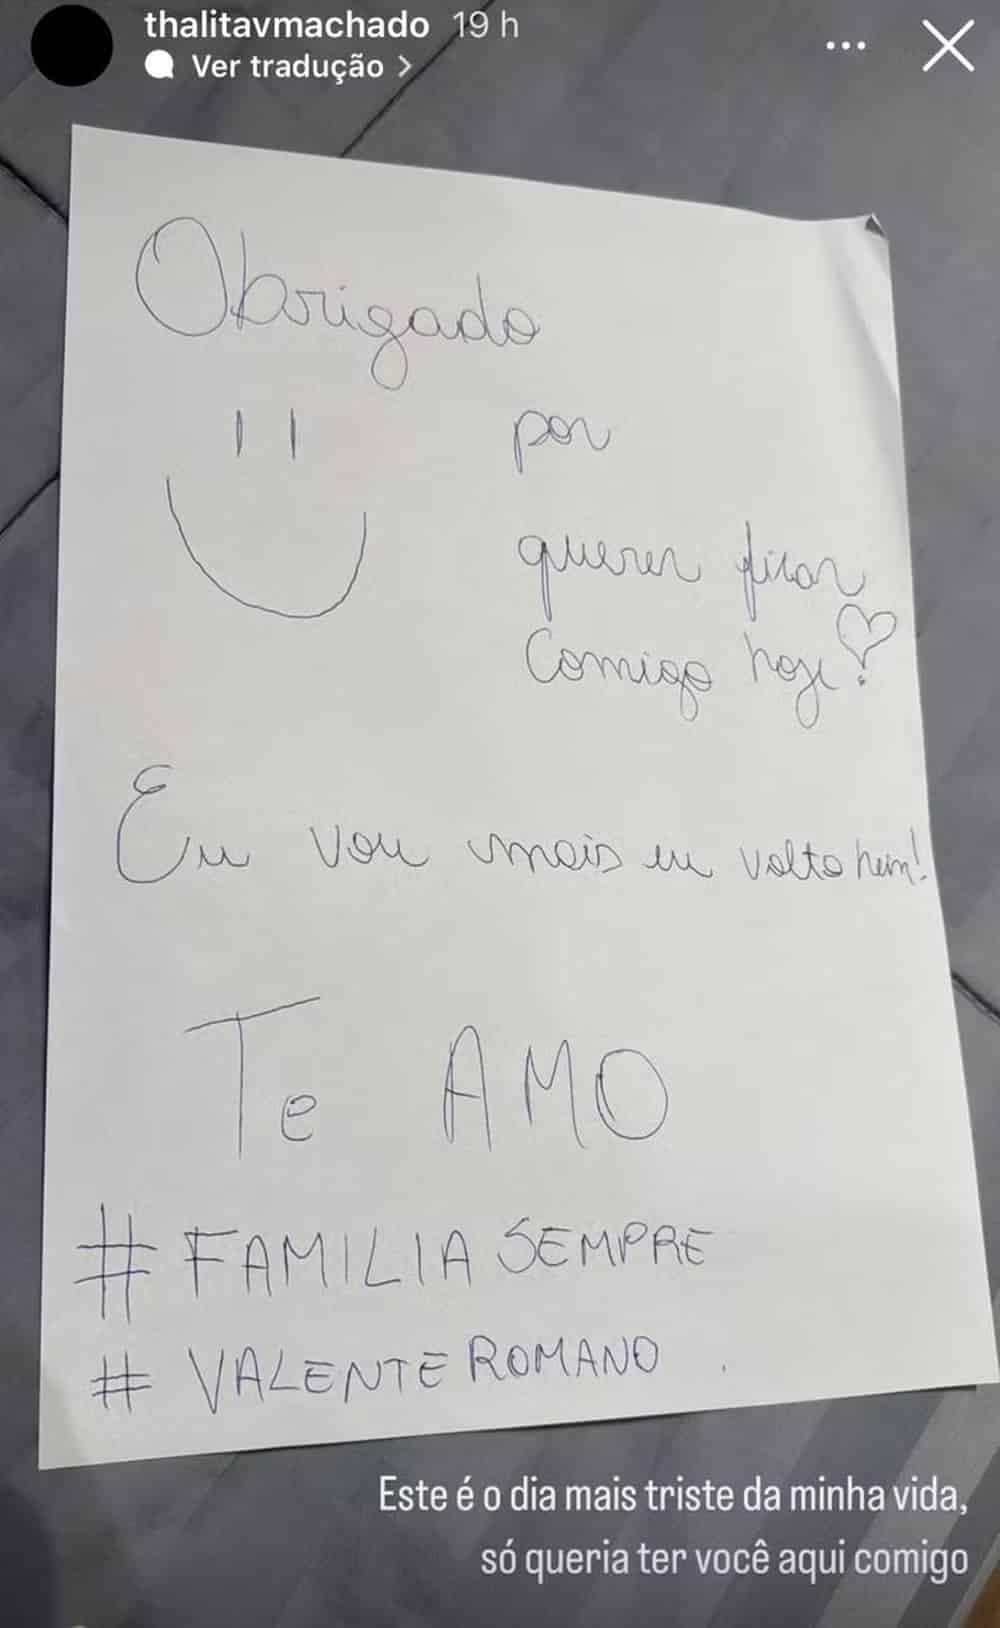 thalitavmachado 19 h
Ver tradução >
Obrigado
por
querer ficar
Comigo hoje!
Eu vou mais eu volto hem!
Te AMO
# FAMILIA SEMPRE
# VALENTE ROMANO
Este é o dia mais triste da minha vida,
só queria ter você aqui comigo